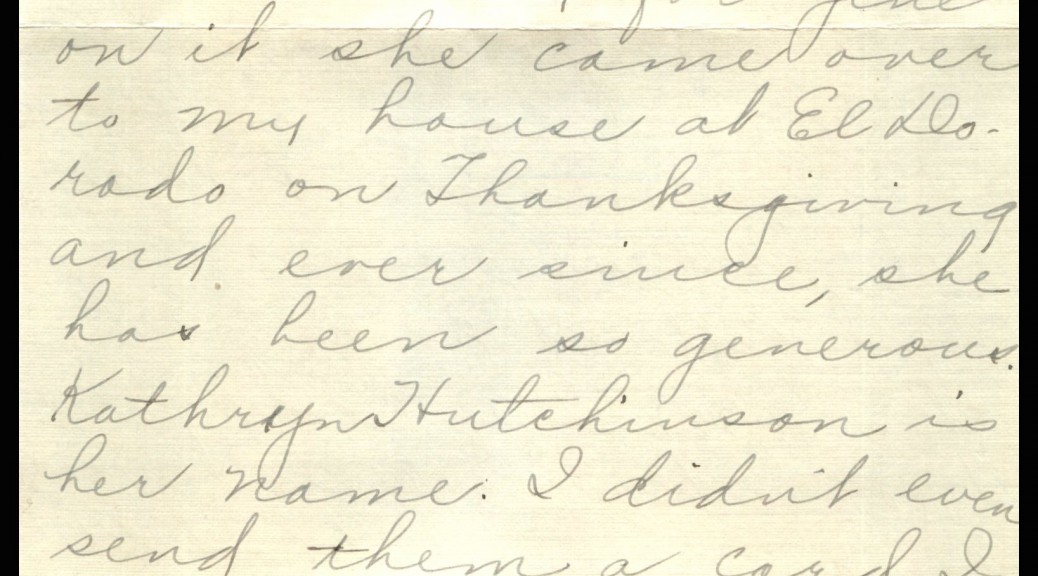 on it she came over
to my house at El Do-
rado on Thanksgiving
and ever since, she
has been so generous.
Kathryn Hutchinson is
her name. I didn't even
send them a card I